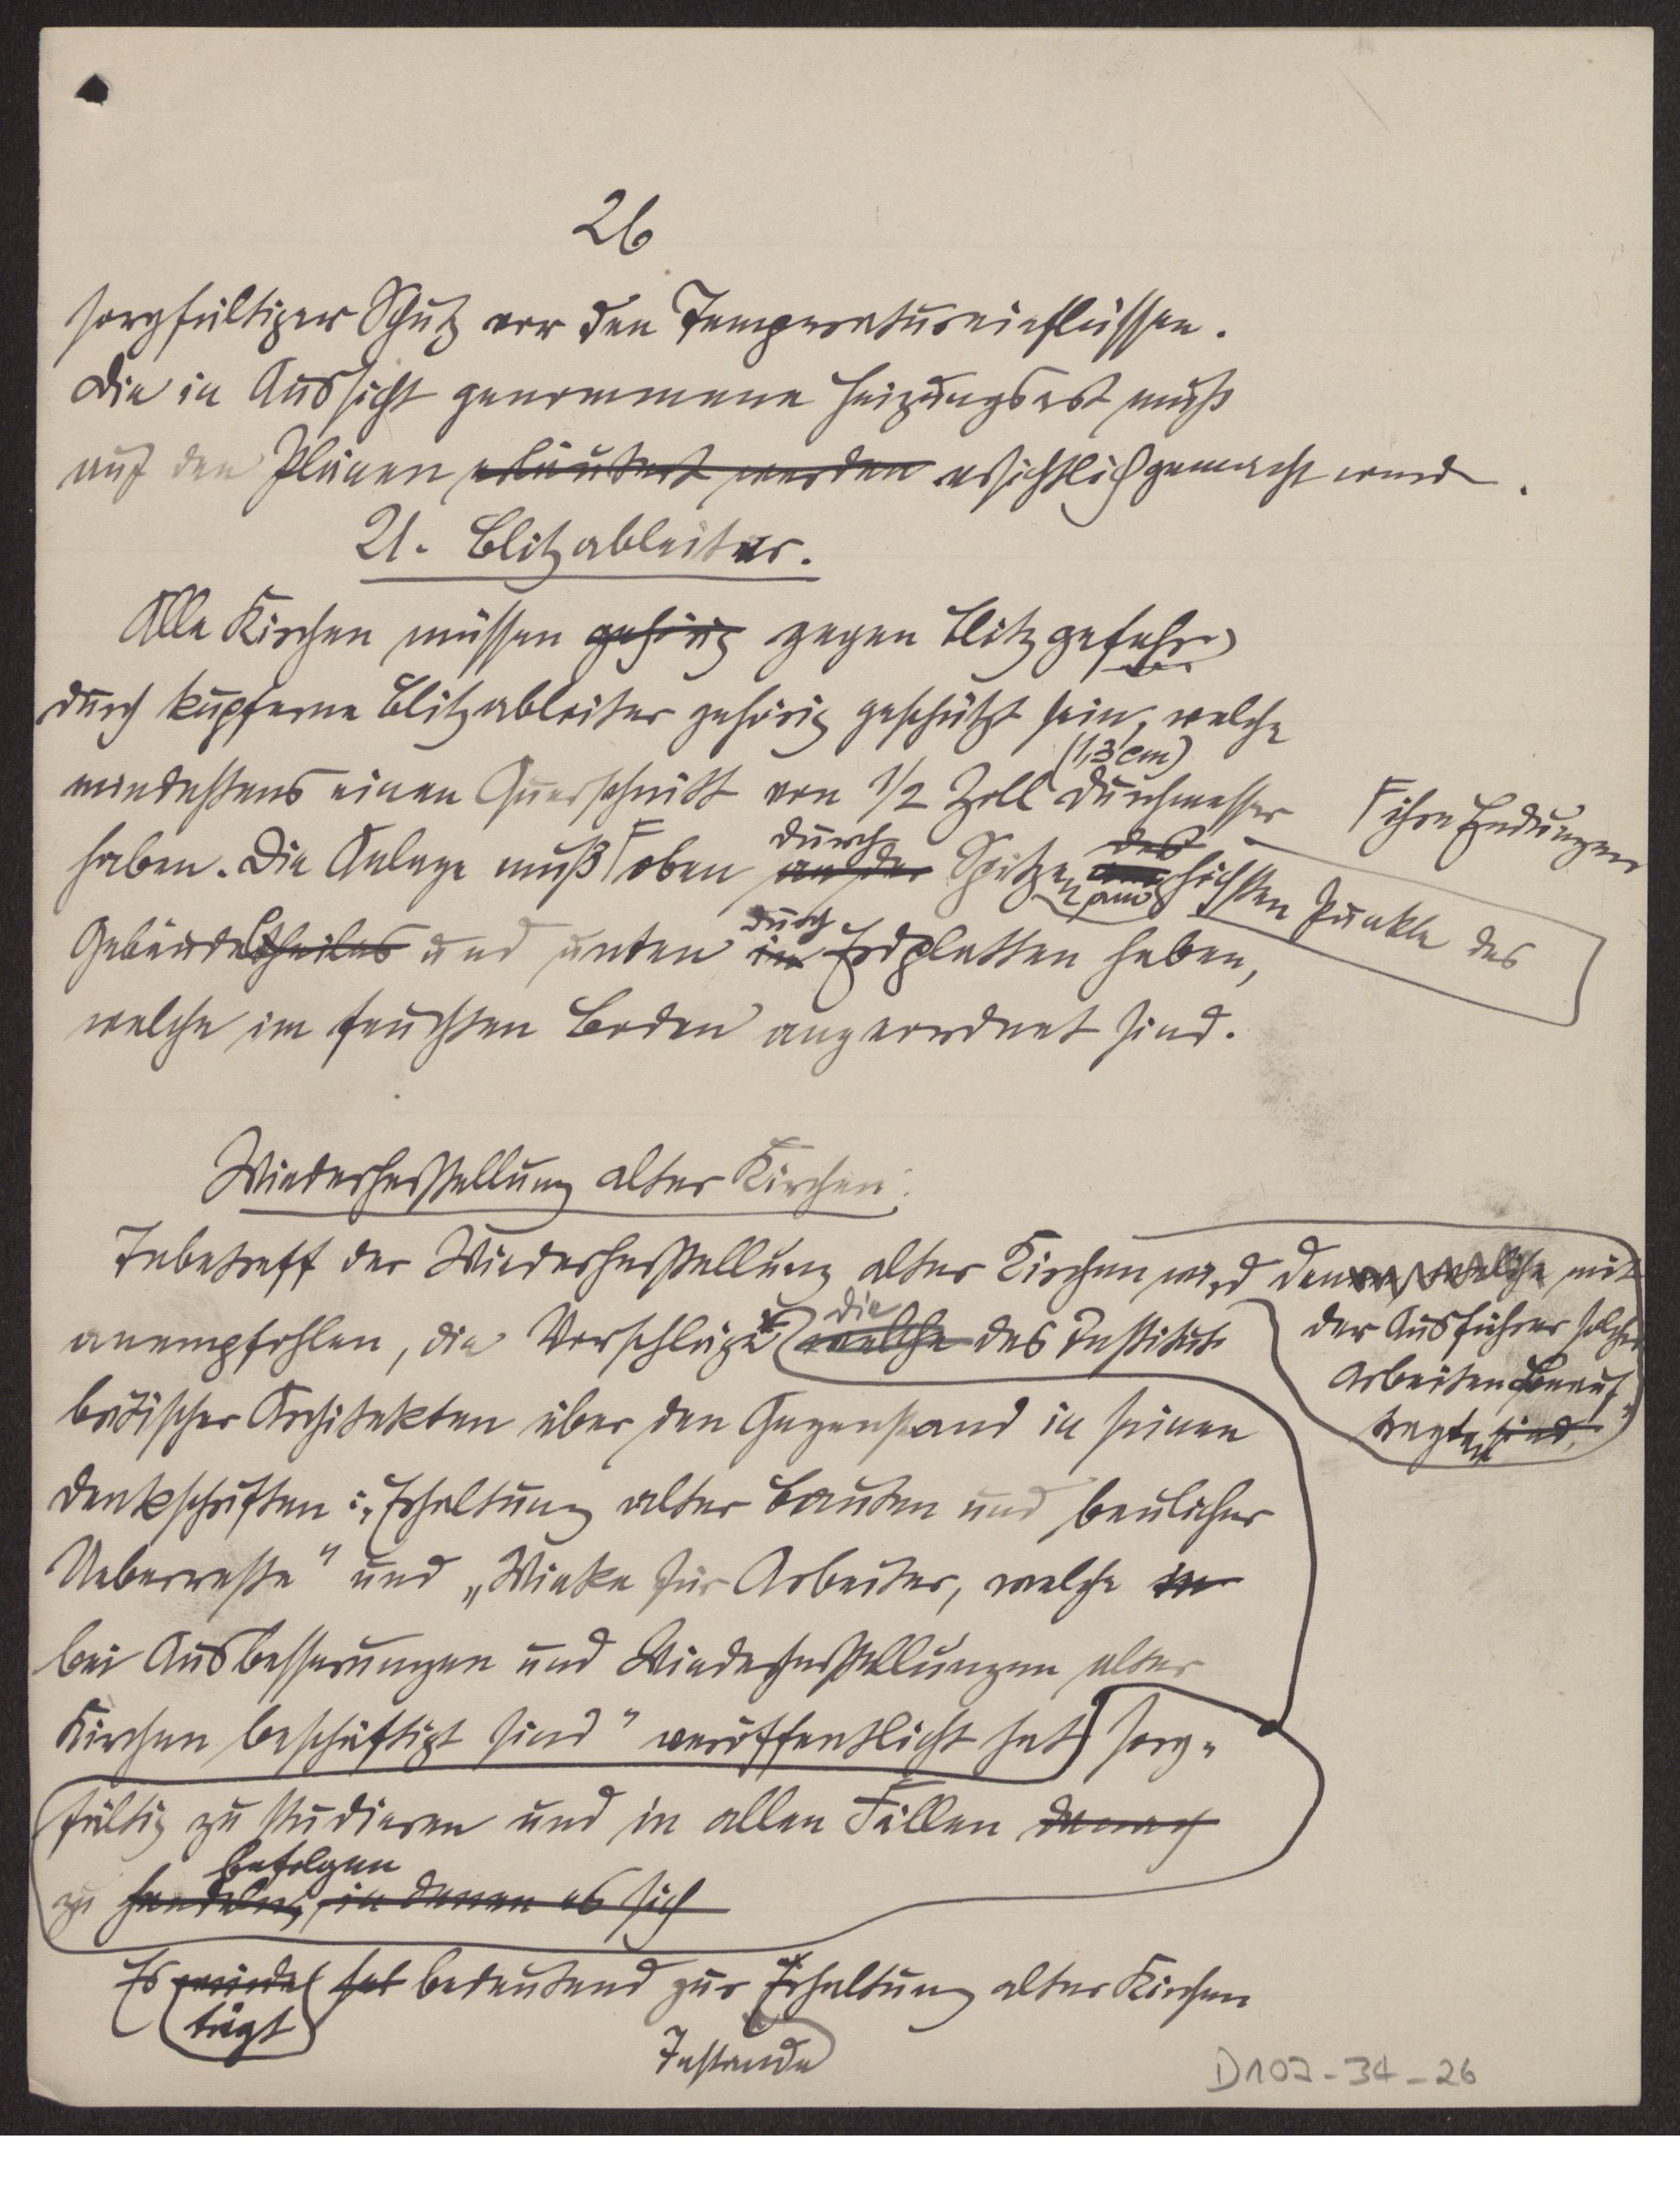 26
sorgfältiger Schutz vor den Temperatureinflüssen.
Die in Aussicht genommene Heizungsart muß
auf den Plänen erläutert werden ersichtlich gemacht werden.
21. Blitzableiter.
Alle Kirchen müssen gehörig gegen Blitzgefahr
durch kupferne Blitzableiter gehörig geschützt sein, welche
(1,3 cm)
mindestens einen Querschnitt von 1/2 Zoll Durchmesser
ihre Endungen
durch des
haben. Die Anlage muß oben an der Spitzen am höchsten Punkte des
durch
Gebäudetheiles und unten in Erdplatten haben,
welche im feuchten Boden angeordnet sind.
Wiederherstellung alter Kirchen.
Inbetreff der Wiederherstellung alter Kirchen wird den welche mit
der Ausführer solcher
Arbeiten Beauf-
tragten sind,
die
anempfohlen, die Vorschläge welche des Instituts
britischer Architekten über den Gegenstand in seinen
Denkschriften: „Erhaltung alter Bauten und baulicher
Ueberreste" und „Winke für Arbeiter, welche in
bei Ausbesserungen und Wiederherstellungen alter
Kirchen beschäftigt sind" veröffentlicht hat sorg-
fältig zu studieren und in allen Fällen danach
befolgen
zu handeln, in denen es sich
Es würde hat bedeutend zur Erhaltung alter Kirchen
trägt
Instande
D107-34-26